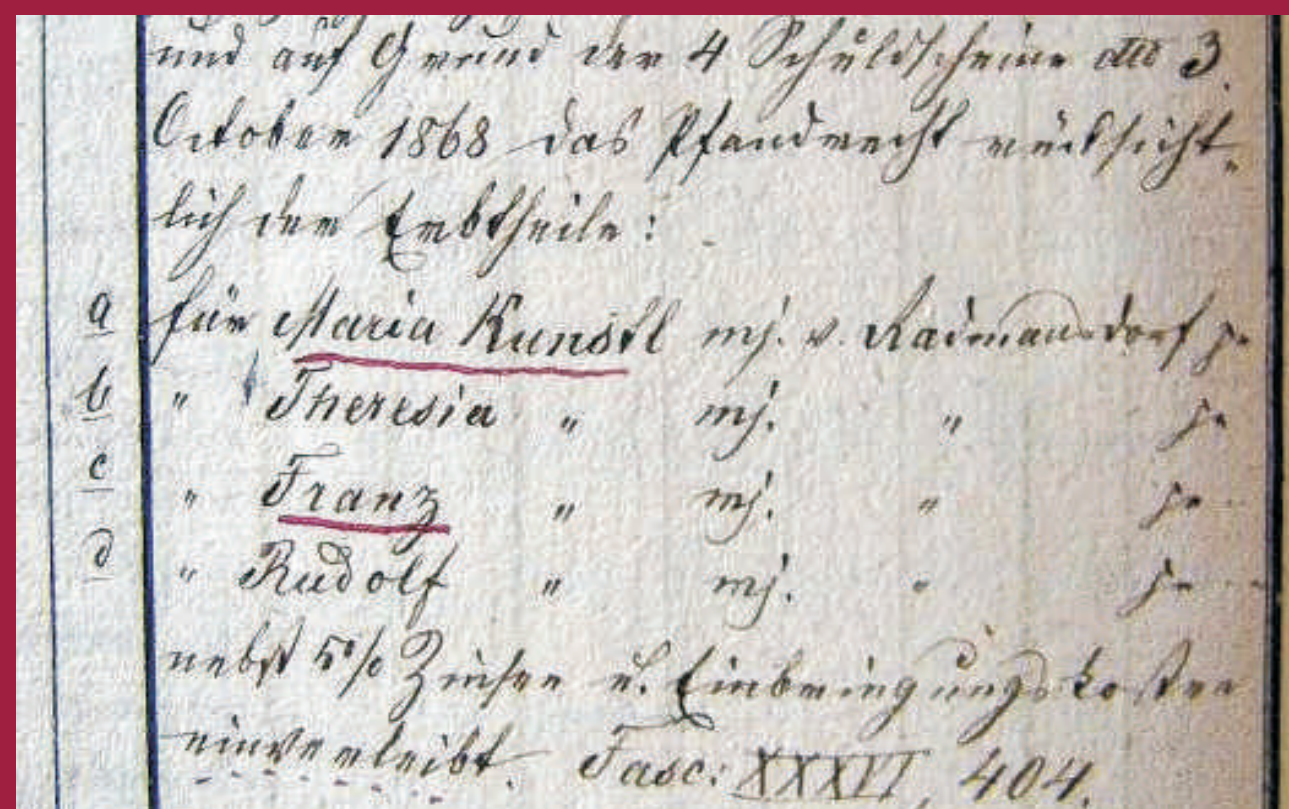 und auf Grund der 4 Schuldscheine dto 3.
October 1868 das Pfandrecht rücksicht-
lich der Erbtheile:
a für Maria Kunstl mj. v. Radmannsdorf pr
b " Theresia " mj. " pr
c " Franz " mj. " pr
d " Rudolf " mj. " pr
nebst 5% Zinsen u. Einbringungskosten
einverleibt. Fasc: XXXVI, 404.